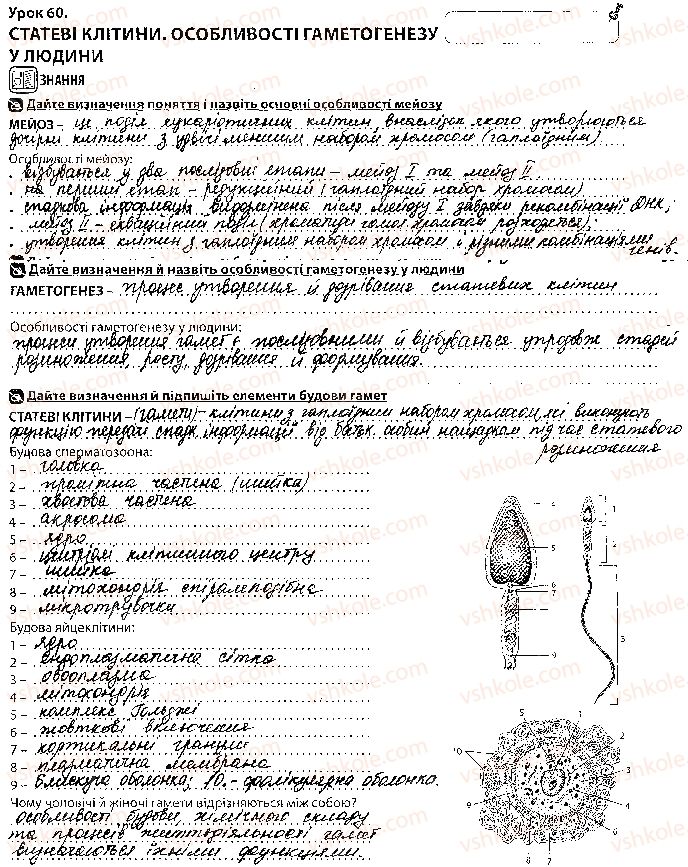 Урок 60.
СТАТЕВІ КЛІТИНИ. ОСОБЛИВОСТІ ГАМЕТОГЕНЕЗУ
У ЛЮДИНИ
ЗНАННЯ
Дайте визначення поняття і назвіть основні особливості мейозу
МЕЙОЗ – це поділ еукаріотичних клітин внаслідок якого утворюються
дочірні клітини з удвічі меншим набором хромосом (гаплоїдним)
Особливості мейозу:
· відбувається у два послідовні етапи – мейоз І та мейоз ІІ
· на перший етап – редукційний (гаплоїдний набор хромосом)
· спадкова інформація відозмінена після мейозу І завдяки рекомбінації ДНК;
· мейоз ІІ – екваційний поділ (хроматиди гомол хромосом розходяться);
· утворення клітин з гаплоїдним набором хромосом і різними комбінаціями
генів.
Дайте визначення й назвіть особливості гаметогенезу у людини
ГАМЕТОГЕНЕЗ – процес утворення й дозрівання статевих клітин
Особливості гаметогенезу у людини:
процеси утворення гамет є послідовними й відбувається упродовж стадей
розмноження, росту, дозрівання й формування.
Дайте визначення й підпишіть елементи будови гамет
СТАТЕВІ КЛІТИНИ – (гамети) – клітини з гаплоїдним набором хромосом, які виконують
функцію передачі спадк. інформацій від батьк. особин нащадкам під час статевого
розмноження
Будова сперматозоона:
1 – головка
2 – проміжна частина (шийка)
3 – хвостова частина
4 – акросома
5 – ядро
6 – центріолі клітинного центру
7 – шийка
8 – мітохондрія спіралеподібна
9 – мікротрубочки
Будова яйцеклітини:
1 – ядро
2 – ендоплазматична сітка
3 – овоплазма
4 – мітохондрія
5 – комплекс Гольджі
6 – жовткові включення
7 – кортикальні гранули
8 – плазматична мембрана
9 – блискуча оболонка; 10.– фолікулярна оболонка.
Чому чоловічі й жіночі гамети відрізняються між собою?
особливості будови, хімічного складу
та процесів життєдіяльності гамет
визначаються їхніми функціями.
4
5
6
7
8
9
1
2
3
5
1
2
3
4
6
7
8
9
10
vshkole.com